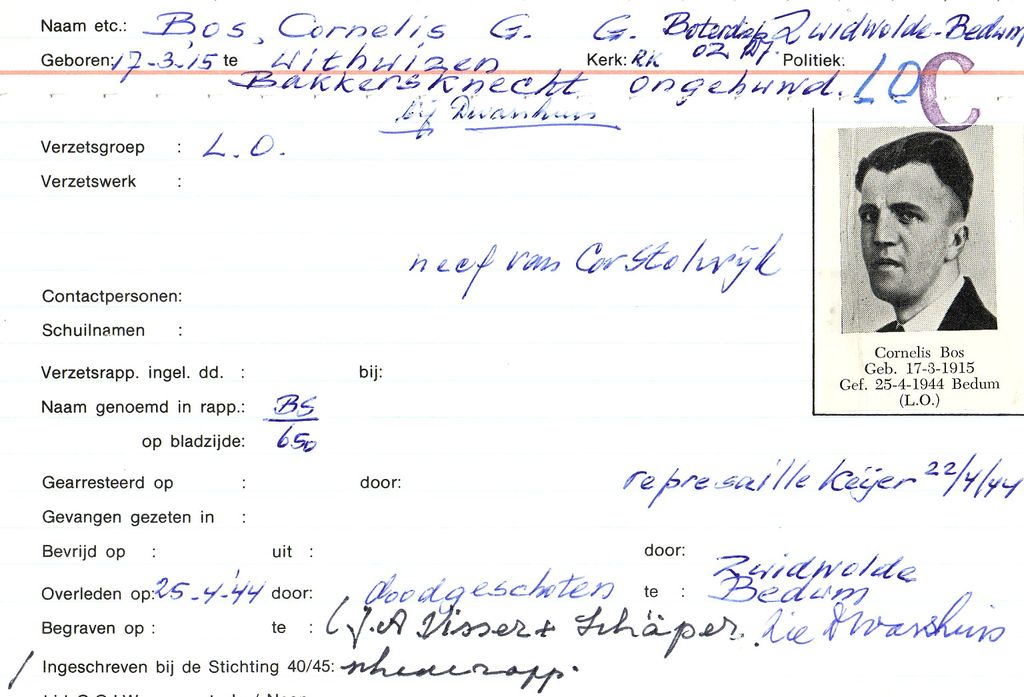 Naam etc.: Bos, Cornelis G. G. Boterdiep Zuidwolde-Bedum
Geboren: 17-3-'15 te Withuizen Kerk: RK 02 Politiek:
Bakkersknecht ongehuwd. LO C
bij Dwarshuis
Verzetsgroep : L.O.
Verzetswerk :
neef van Cor Stolwijk
Contactpersonen:
Schuilnamen :
Cornelis Bos
Geb. 17-3-1915
Gef. 25-4-1944 Bedum
(L.O.)
Verzetsrapp. ingel. dd. : bij:
Naam genoemd in rapp.: BS
op bladzijde: 650
Gearresteerd op : door: represaille Keijer 22/4/44
Gevangen gezeten in :
Bevrijd op : uit : door:
Overleden op: 25-4-'44 door: doodgeschoten te : Zuidwolde Bedum
Begraven op : te : (J.A Visser + Schäper. Zie Dwarshuis
Ingeschreven bij de Stichting 40/45: